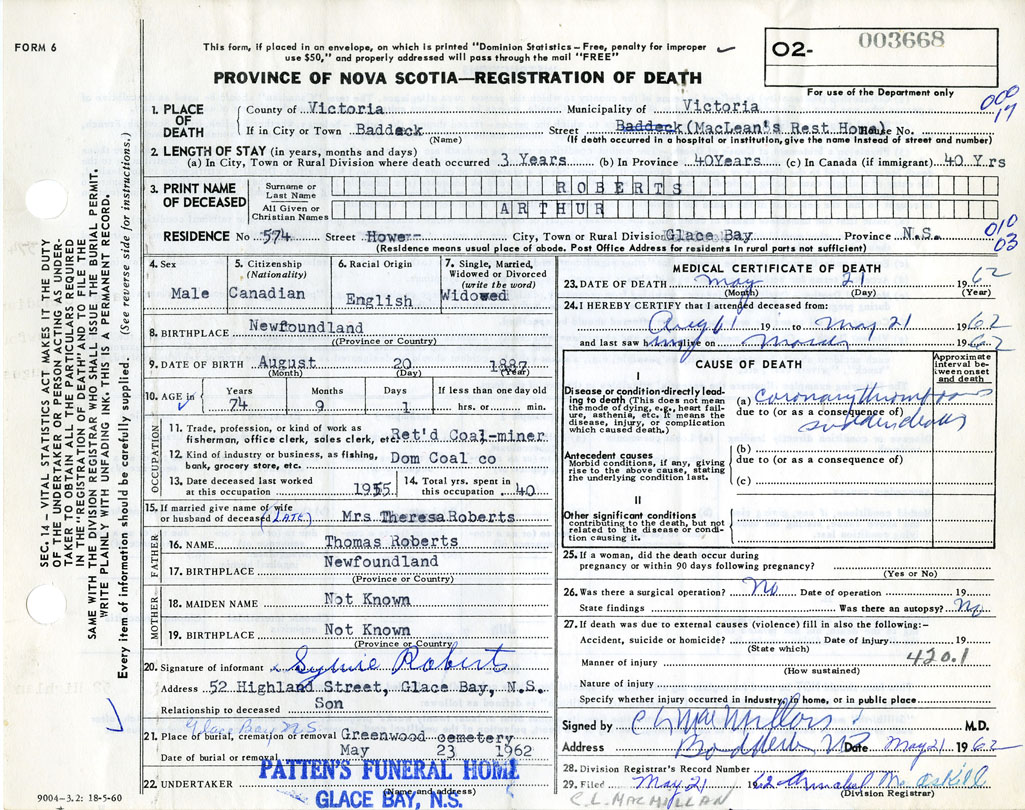 FORM 6
This form, if placed in an envelope, on which is printed "Dominion Statistics – Free, penalty for improper
use $50," and properly addressed will pass through the mail "FREE"
PROVINCE OF NOVA SCOTIA—REGISTRATION OF DEATH
O2- 003668
For use of the Department only
000
17
1. PLACE OF DEATH
County of Victoria Municipality of Victoria
If in City or Town Baddeck Street Baddeck (MacLean's Rest Home) House No.
(Name) (If death occurred in a hospital or institution, give the name instead of street and number)
2. LENGTH OF STAY (in years, months and days)
(a) In City, Town or Rural Division where death occurred 3 Years (b) In Province 40Years (c) In Canada (if immigrant) 40 Yrs
3. PRINT NAME OF DECEASED
Surname or Last Name ROBERTS
All Given or Christian Names ARTHUR
RESIDENCE No 574 Street Howe City, Town or Rural Division Glace Bay Province N.S.
(Residence means usual place of abode. Post Office Address for residents in rural parts not sufficient)
010
03
4. Sex Male
5. Citizenship (Nationality) Canadian
6. Racial Origin English
7. Single, Married, Widowed or Divorced (write the word) Widowed
8. BIRTHPLACE Newfoundland
(Province or Country)
9. DATE OF BIRTH August 20 1887
(Month) (Day) (Year)
10. AGE in Years 74 Months 9 Days 1 If less than one day old hrs. or min.
OCCUPATION
11. Trade, profession, or kind of work as
fisherman, office clerk, sales clerk, etc. Ret'd Coal-miner
12. Kind of industry or business, as fishing,
bank, grocery store, etc. Dom Coal co
13. Date deceased last worked
at this occupation 1955
14. Total yrs. spent in
this occupation 40
15. If married give name of wife
or husband of deceased (LATE) Mrs TheresaRoberts
FATHER
16. NAME Thomas Roberts
17. BIRTHPLACE Newfoundland
(Province or Country)
MOTHER
18. MAIDEN NAME Not Known
19. BIRTHPLACE Not Known
(Province or Country)
20. Signature of informant Roberts
Address 52 Highland Street, Glace Bay, N.S.
Relationship to deceased Son
Glace Bay N.S.
21. Place of burial, cremation or removal Greenwood cemetery
Date of burial or removal May 23 1962
22. UNDERTAKER PATTEN'S FUNERAL HOME
(Name and address)
GLACE BAY, N.S.
9004–3.2: 18-5-60
MEDICAL CERTIFICATE OF DEATH
23. DATE OF DEATH May 21 1962
(Month) (Day) (Year)
24. I HEREBY CERTIFY that I attended deceased from:
Aug 61 19 to May 21 1962
and last saw him alive on 1962
CAUSE OF DEATH
Approximate interval between onset and death
I
Disease or condition directly leading to death (This does not mean the mode of dying, e.g., heart failure, asthenia, etc. It means the disease, injury, or complication which caused death.)
(a) coronary thrombosis
due to (or as a consequence of)
sudden death
Antecedent causes
Morbid conditions, if any, giving rise to the above cause, stating the underlying condition last.
(b)
due to (or as a consequence of)
(c)
II
Other significant conditions
contributing to the death, but not related to the disease or condition causing it.
25. If a woman, did the death occur during
pregnancy or within 90 days following pregnancy?
(Yes or No)
26. Was there a surgical operation? No Date of operation 19
State findings Was there an autopsy? No
27. If death was due to external causes (violence) fill in also the following:–
Accident, suicide or homicide? Date of injury 19
(State which)
420.1
Manner of injury
(How sustained)
Nature of injury
Specify whether injury occurred in industry, in home, or in public place
Signed by C L MacMillan M.D.
Address Baddeck NS Date May 21 1962
28. Division Registrar's Record Number
29. Filed May 21 1962 Annabel McAskill
(Division Registrar)
C.L. MACMILLAN
SEC. 14 – VITAL STATISTICS ACT MAKES IT THE DUTY
OF THE UNDERTAKER OR PERSON ACTING AS UNDER-
TAKER TO OBTAIN ALL THE PARTICULARS REQUIRED
IN THE "REGISTRATION OF DEATH" AND TO FILE THE
SAME WITH THE DIVISION REGISTRAR WHO SHALL ISSUE THE BURIAL PERMIT.
WRITE PLAINLY WITH UNFADING INK. THIS IS A PERMANENT RECORD.
Every item of information should be carefully supplied. (See reverse side for instructions.)